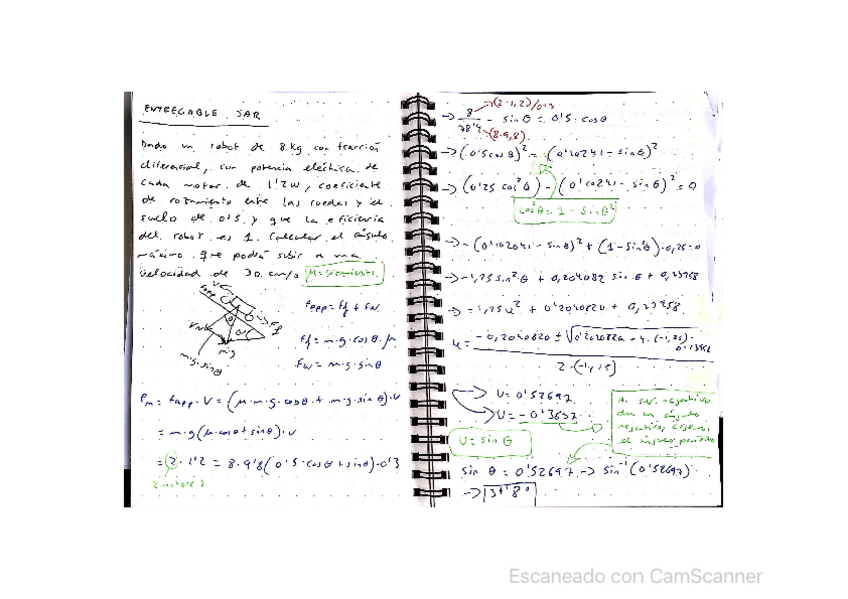 ENTREGABLE SAR
Dado un robot de 8 Kg con tracción
diferencial, con potencia eléctrica de
cada motor de 1'2W, coeficiente
de rozamiento entre las ruedas y el
suelo de 0'5 y que la eficiencia
del robot es 1. Calcular el ángulo
máximo que podrá subir a una
velocidad de 30 cm/s
Fapp = Ff + Fw
Ff = m·g·cosθ·μ
Fw = m·g·sinθ
m·g
m·g·sinθ
Pm = Fapp·V = (μ·m·g·cosθ + m·g·sinθ)·v
= m·g(μ·cosθ + sinθ)·v
= 2·1'2 = 8·9'8(0'5·cosθ + sinθ)·0'3
2 motores
→ 8/78'4 - sinθ = 0'5·cosθ
(2·1,2)/0'3
(8·9,8)
→ (0'5cosθ)² = (0'102041 - sinθ)²
→ (0'25 cos²θ) - (0'102041 - sinθ)² = 0
cos²θ = 1 - sin²θ
→ -(0'102041 - sinθ)² + (1 - sin²θ)·0,25 = 0
→ -1,25 sin²θ + 0,204082 sinθ + 0,23958
→ = -1,25u² + 0'204082u + 0,23958
2·(-1,25)
→ U = 0'52697
→ U = -0'3637
U = sin θ
Al ser negativo
da un ángulo
negativo, cogemos
el ángulo positivo
sin θ = 0'52697 → sin⁻¹(0'52697)
→ 31'8°
Escaneado con CamScanner